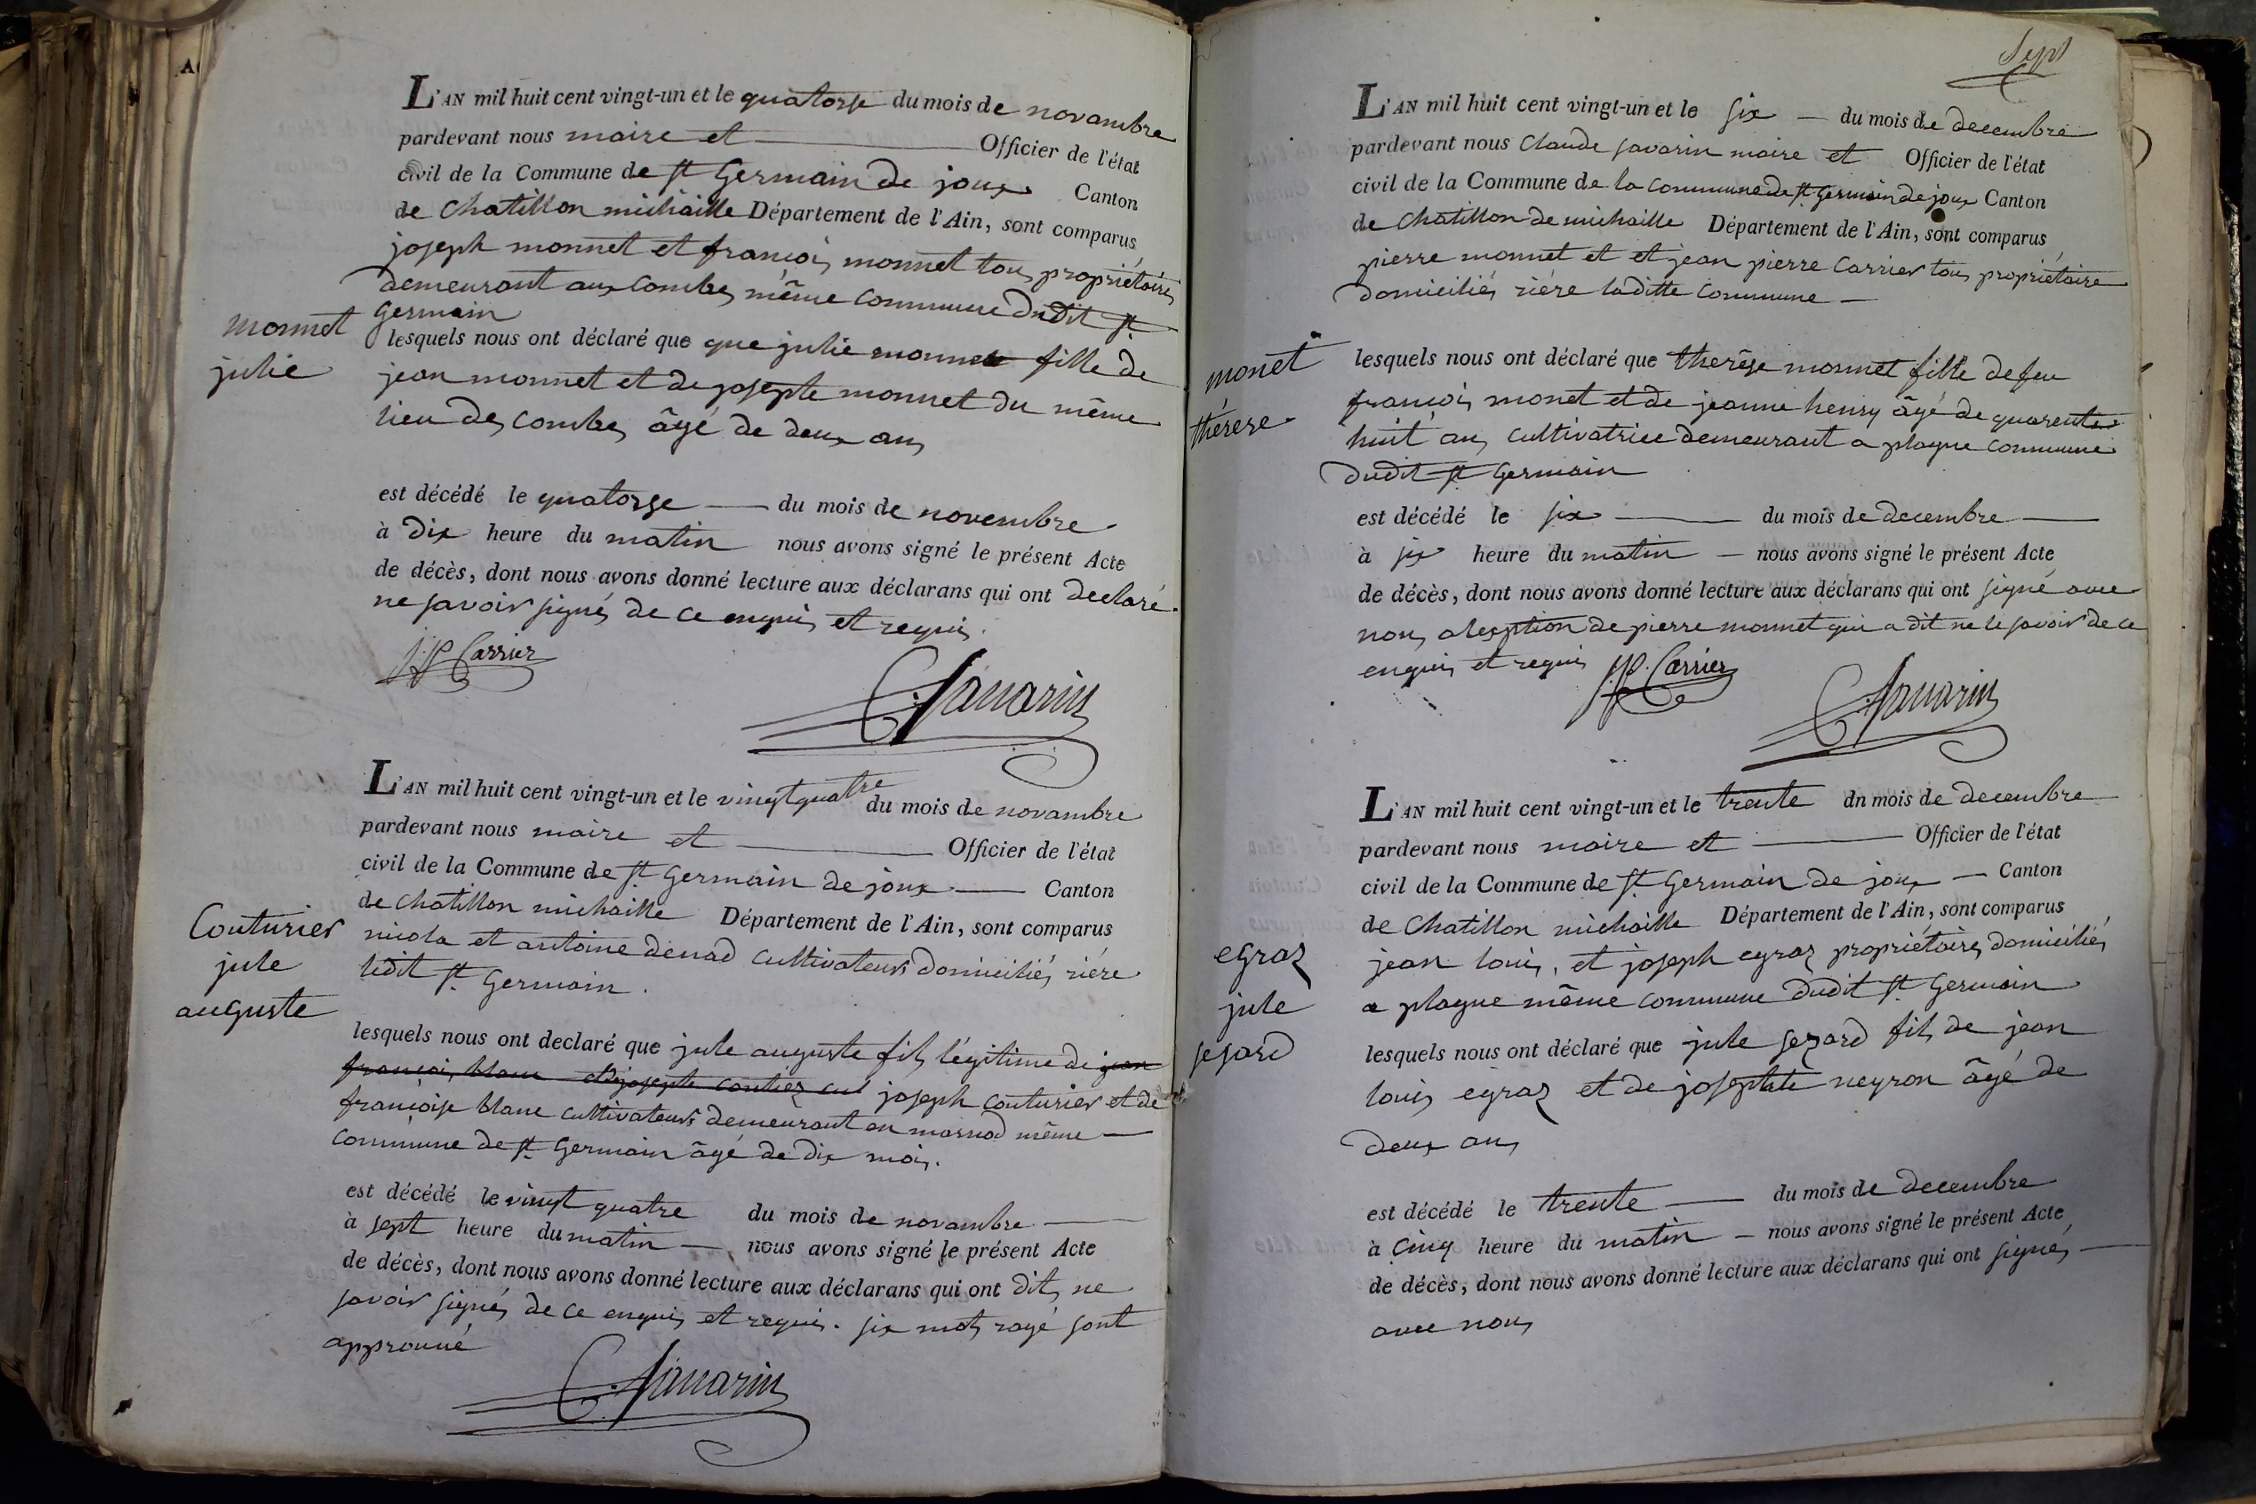 L'AN mil huit cent vingt-un et le quatorse du mois de novambre
pardevant nous maire et Officier de l'état
civil de la Commune de st Germain de joux Canton
de chatillon michaille Département de l'Ain, sont comparus
joseph monnet et francois monnet tous propriétaires
demeurant aux combes même commune dudit st
Germain
monnet
julie
lesquels nous ont déclaré que que julie monnet fille de
jean monnet et de josepte monnet du même
lieu des combes âgé de deux ans
est décédé le quatorze du mois de novembre
à dix heure du matin nous avons signé le présent Acte
de décès, dont nous avons donné lecture aux déclarans qui ont declaré
ne savoir signés de ce enquis et requis.
J. P. Carrier
C. Savarin
L'AN mil huit cent vingt-un et le vingt quatre du mois de novambre
pardevant nous maire et Officier de l'état
civil de la Commune de st Germain de joux Canton
de chatillon michaille Département de l'Ain, sont comparus
nicola et antoine cultivateurs domiciliés riére
ledit st Germain.
Couturier
jule
auguste
lesquels nous ont declaré que jule auguste fils légitime de jean
francois blanc josepte joseph couturier et de
françoise blanc cultivateurs demeurant en marnod même
commune de st Germain âgé de dix mois.
est décédé le vingt quatre du mois de novambre
à sept heure du matin nous avons signé le présent Acte
de décès, dont nous avons donné lecture aux déclarans qui ont dits ne
savoir signés de ce enquis et requis. six mots rayé sont
approuvé
C. Savarin
Sept
L'AN mil huit cent vingt-un et le six du mois de decembre
pardevant nous Claude savarin maire et Officier de l'état
civil de la Commune de la commune de st Germain de joux Canton
de chatillon de michaille Département de l'Ain, sont comparus
pierre monnet et et jean pierre carrier tous propriétaire
domiciliés riére laditte commune
monet
thérèse
lesquels nous ont déclaré que therèse monnet fille de feu
francois monet et de jeanne henry âgé de quarente
huit ans cultivatrice demeurant a plagne commune
dudit st Germain
est décédé le six du mois de decembre
à six heure du matin nous avons signé le présent Acte
de décès, dont nous avons donné lecture aux déclarans qui ont signé avec
nous de pierre monnet qui a dit ne le savoir de ce
enquis et requis J. P. Carrier
C. Savarin
L'AN mil huit cent vingt-un et le trente dn mois de decembre
pardevant nous maire et Officier de l'état
civil de la Commune de st Germain de joux Canton
de Chatillon michaille Département de l'Ain, sont comparus
jean louis, et joseph egraz propriétaires domiciliés
a plagne même commune dudit st Germain
egraz
jule
sesard
lesquels nous ont déclaré que jule sezard fils de jean
louis egraz et de josephte neyron âgé de
deux ans
est décédé le trente du mois de decembre
à cinq heure du matin nous avons signé le présent Acte
de décès, dont nous avons donné lecture aux déclarans qui ont signés
avec nous